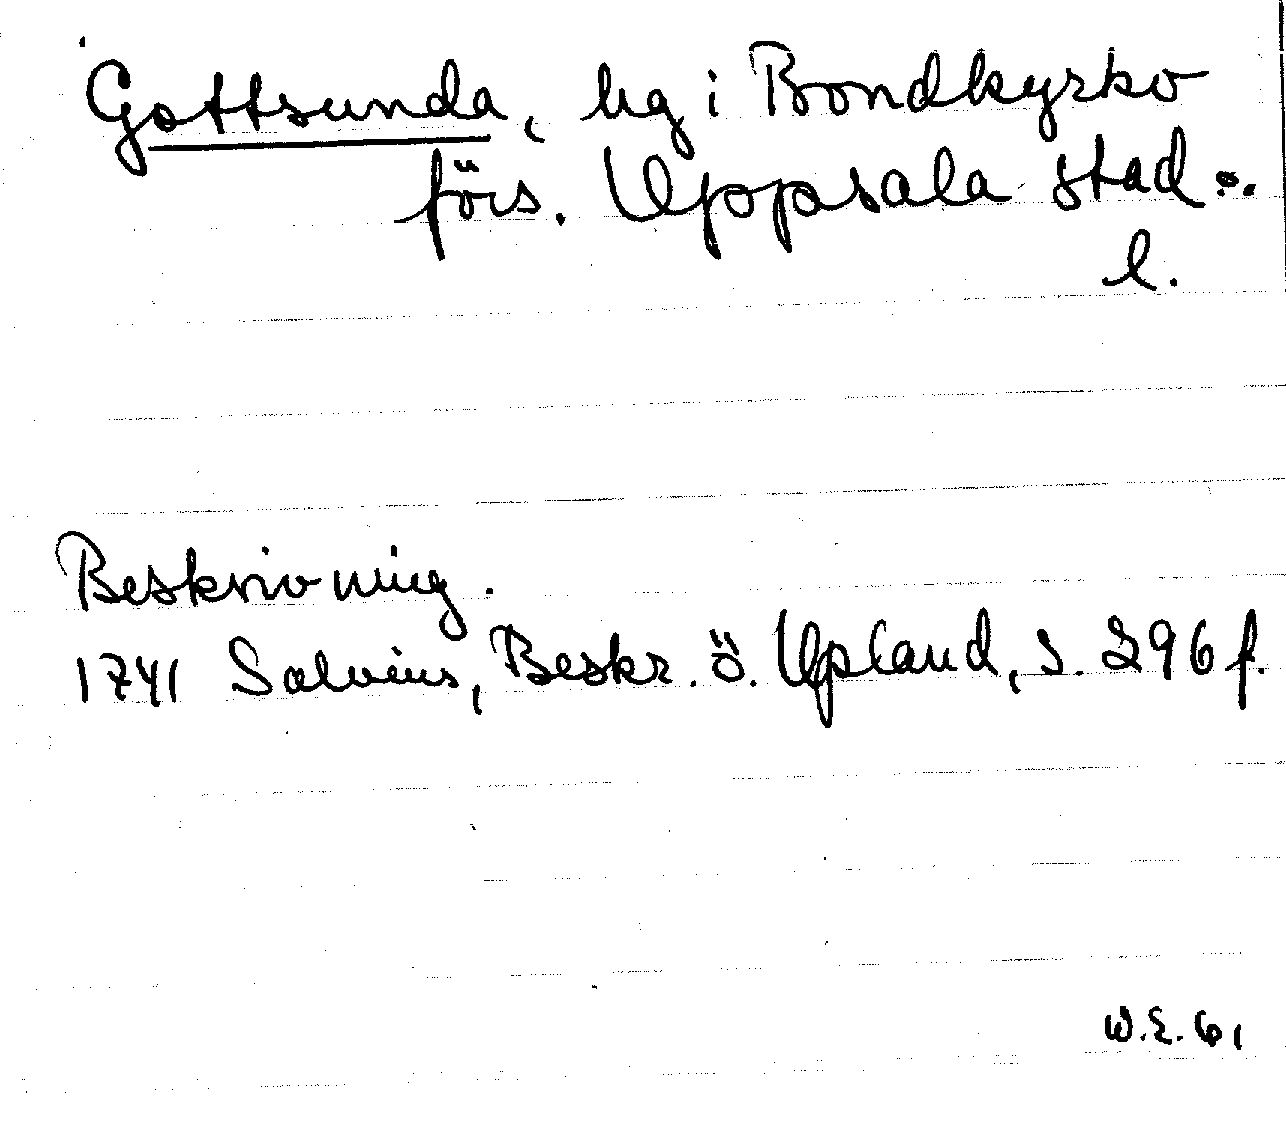 Gottsunda, hg i Bondkyrko
förs. Uppsala stad o.
l.
Beskrivning.
1741 Salvius, Beskr. ö. Upland, s. 296 f.
W.E. 61